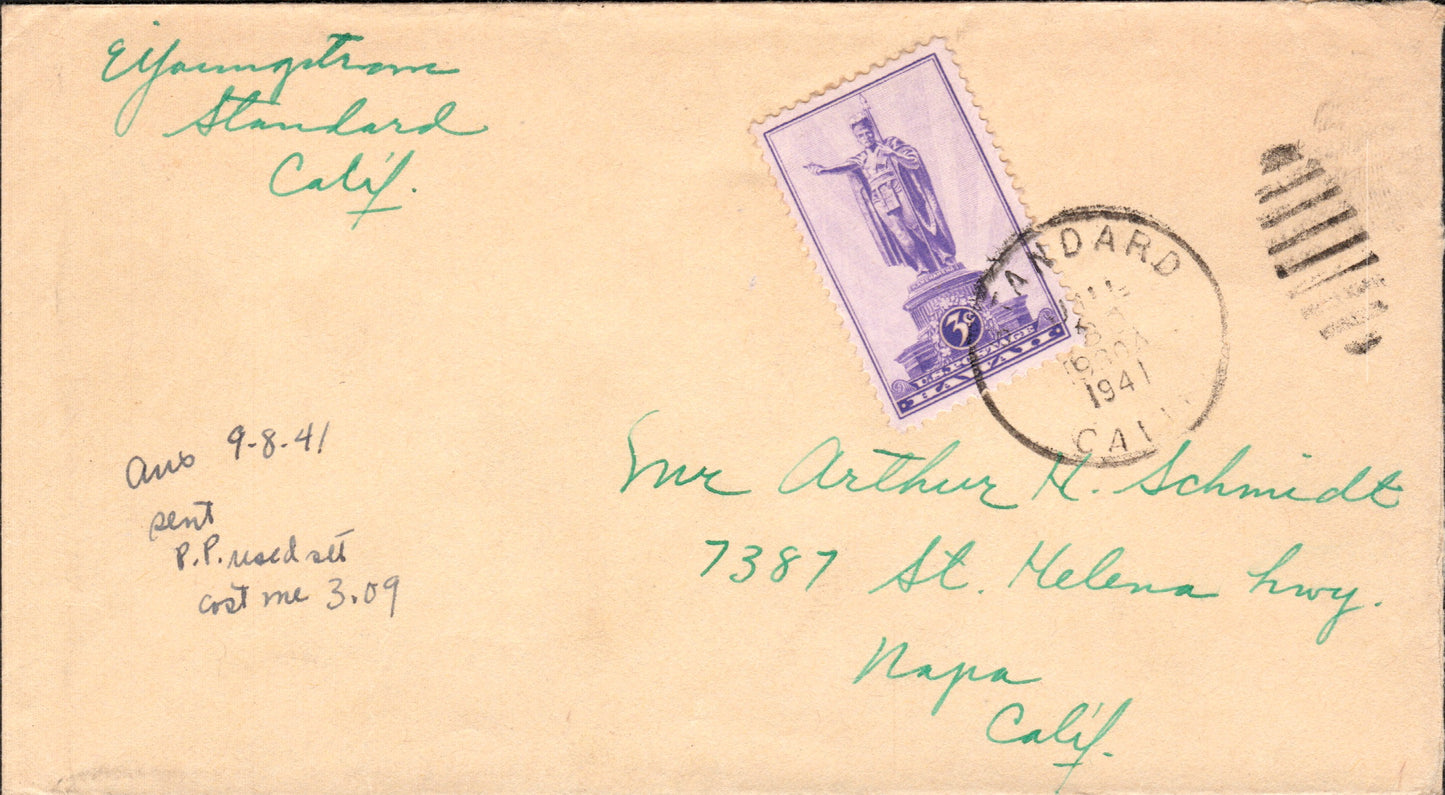 EYoungstrom
Standard
Calif.
3¢
U.S. POSTAGE
HAWAII
STANDARD
1941
CALIF
Mr Arthur H. Schmidt
7387 St. Helena hwy.
Napa
Calif.
Ans 9-8-41
sent
P.P. used set
cost me 3.09